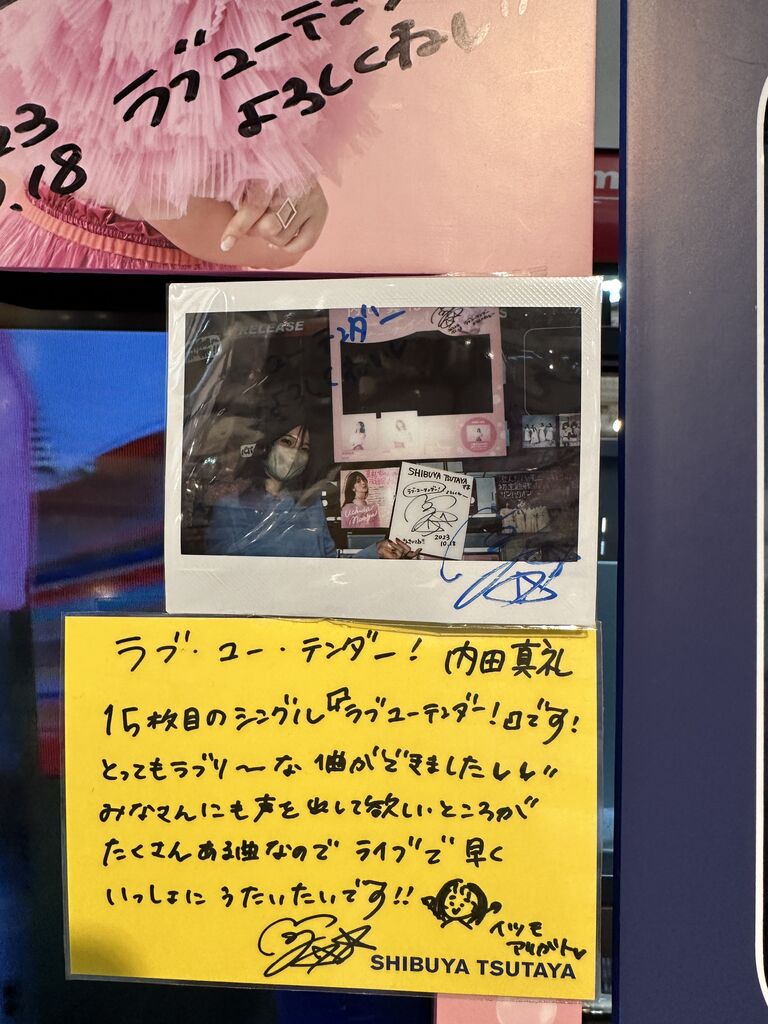 ラブユーテンダー
よろしくねい
23
.18
RELEASE
SHIBUYA TSUTAYA
さま
ラブ・ユー・テンダー!
2023
10.18
Uchida
Maaya
ラブ・ユー・テンダー! 内田真礼
15枚目のシングル『ラブユーテンダー!』です!
とってもラブリ〜な曲ができました
みなさんにも声を出して欲しいところが
たくさんある曲なので ライブで早く
いっしょに うたいたいです!!
イツモ
アリガトウ
SHIBUYA TSUTAYA